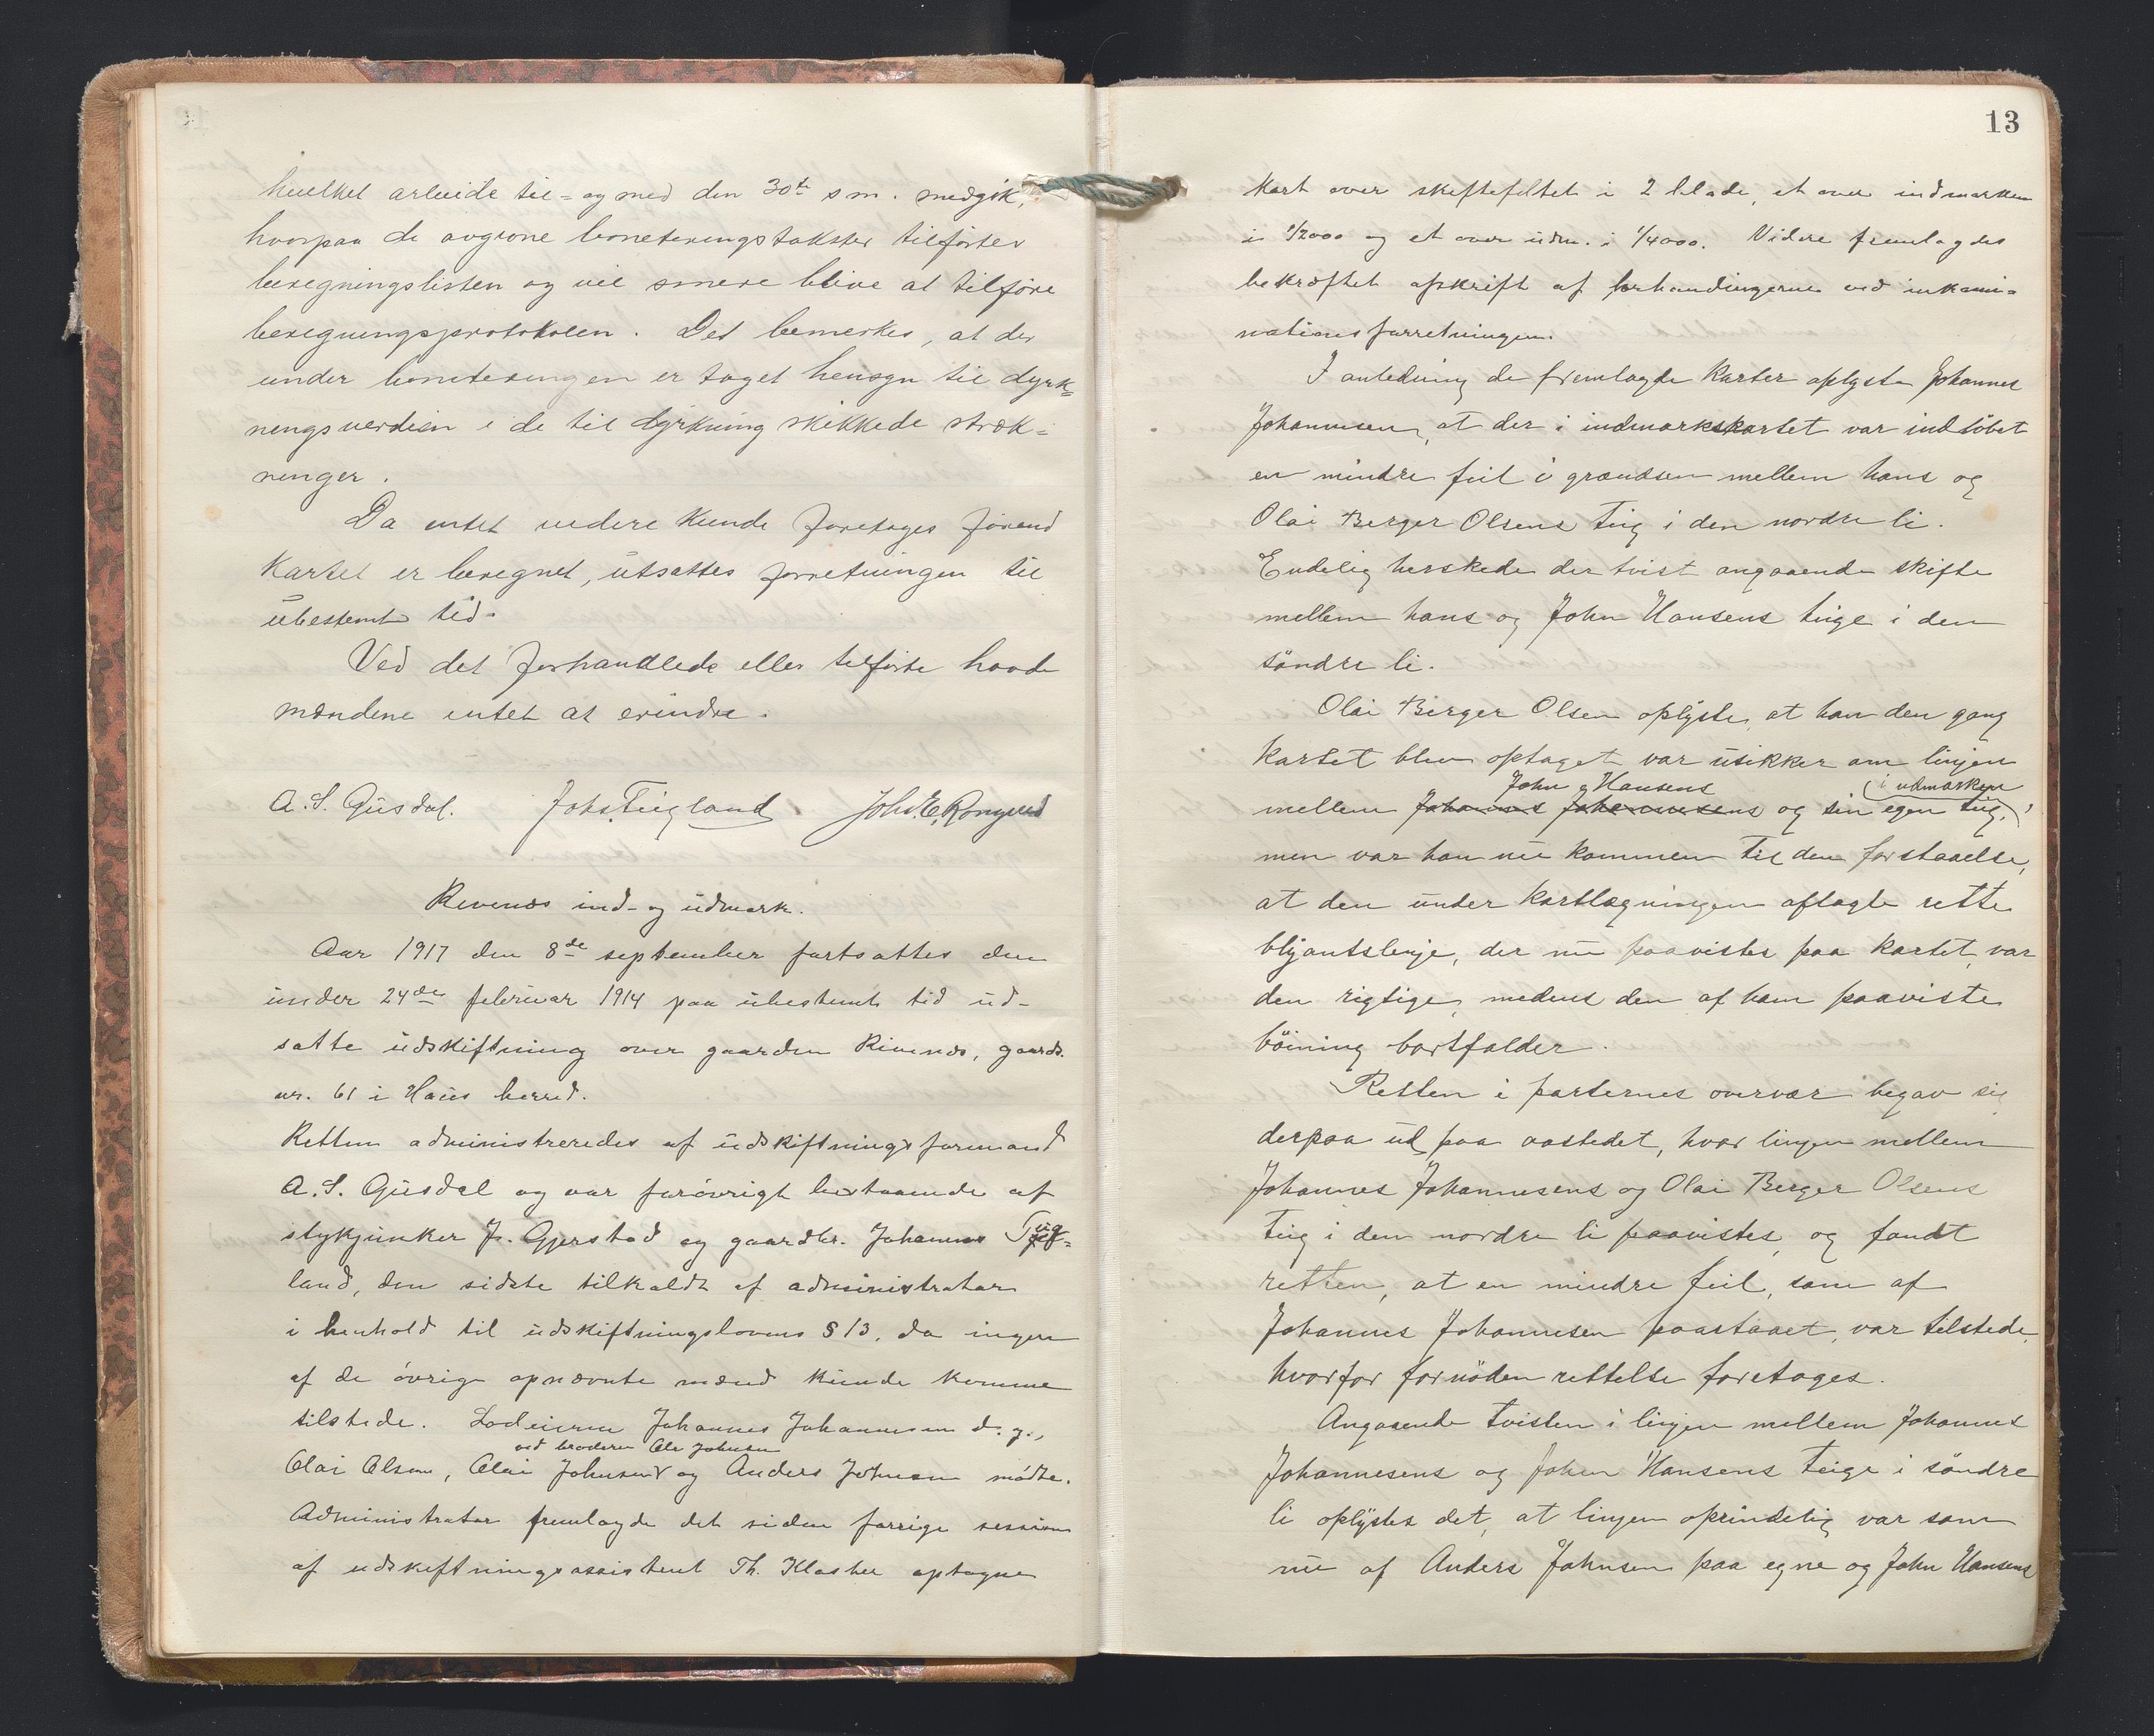 hvilket arbeide til- og med den 30te s.m. medgik,
hvorpaa de avgivne boneteringstakster tilførtes
beregningslisten og vil senere blive at tilføre
beregningsprotokolen. Det bemerkes, at der
under boneteringen er taget hensyn til dyrk-
ningsverdien i de til dyrkning skikkede stræk-
ninger.
Da intet videre kunde foretages førend
Kartet er beregnet, utsattes forretningen til
ubestemt tid.
Ved det forhandlede eller tilførte havde
mændene intet at erindre.
A. S. Gusdal. Johs. Tiegland Johs. E. Romslo
Revenæs ind- og udmark.
Aar 1917 den 8de september fortsattes den
under 24de februar 1914 paa ubestemt tid ud-
satte udskiftning over gaarden Rivenæs, gaards.
nr. 61 i Haus herred.
Retten administreredes af udskiftningsformand
A. S. Gusdal og var forøvrigt bestaaende af
stykjunker Fr. Gjerstad og gaardbr. Johannes Tvig-
land, den sidste tilkaldt af administrator
i henhold til udskiftningslovens § 13, da ingen
af de øvrige opnævnte mænd kunde komme
tilstede. Lodeierne Johannes Johannesen d. y.,
ved broderen Ole Johnsen
Olai Olsen, Olai Johnsen og Anders Johnsen mødte.
Administrator fremlagde det siden forrige session
af udskiftningsassistent Th. Kloster optagne
13
Kart over skiftefeltet i 2 blade, et over indmarken
i 1/2000 og et over udm. i 1/4000. Videre fremlagdes
bekræftet afskrift af forhandlingerne ved inkami-
nationsforretningen.
I anledning de fremlagte Karter oplyste Johannes
Johannesen, at der i indmarkskartet var indløbet
en mindre feil i grændsen mellem hans og
Olai Berger Olsens teig i den nordre li.
Endelig herskede der tvist angaaende skifte
mellem hans og John Hansens teige i den
søndre li.
Olai Birger Olsen oplyste, at han den gang
Kartet blev optaget var usikker om linjen
John Hansens (i udmarken)
mellem Johannes Johannesens og sin egen teig,
men var han nu kommen til den forstaaelse,
at den under kartlægningen aflagte rette
blyantslinje, der nu paavistes paa kartet, var
den rigtige, medens den af ham paaviste
bøining bortfalder.
Retten i parternes overvær begav sig
derpaa ud paa aastedet, hvor linjen mellem
Johannes Johannesens og Olai Berger Olsens
teig i den nordre li paavistes, og fandt
retten, at en mindre feil, som af
Johannes Johannesen paastaaet, var tilstede,
hvorfor fornøden rettelse foretages.
Angaaende tvisten i linjen mellem Johannes
Johannesens og John Hansens teige i søndre
li oplystes det, at linjen oprindelig var som
nu af Anders Johnsen paa egne og John Hansens